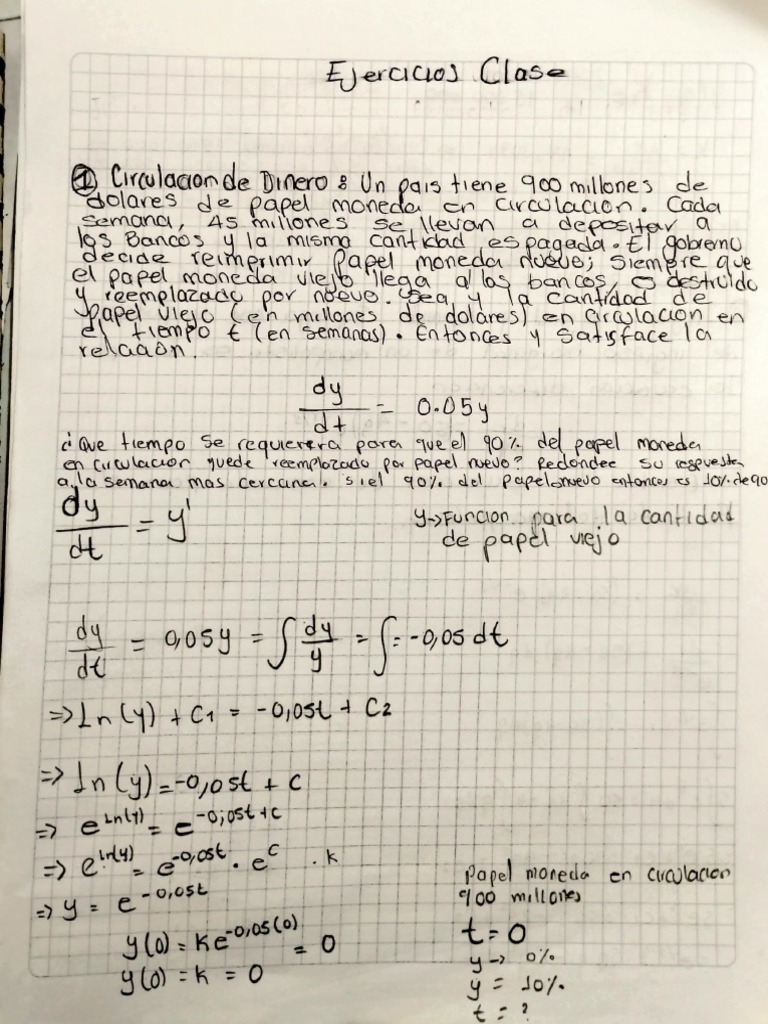 Ejercicios Clase
① Circulacion de Dinero : Un pais tiene 900 millones de
dolares de papel moneda en circulacion. Cada
semana, 45 millones se llevan a depositar a
los Bancos y la misma cantidad es pagada. El gobierno
decide reimprimir papel moneda nuevo; siempre que
el papel moneda viejo llega a los bancos, destruido
y reemplazado por nuevo. Sea y la cantidad de
papel viejo (en millones de dolares) en circulacion en
el tiempo t (en semanas). Entonces y satisface la
relacion.
dy/dt = 0.05y
¿Que tiempo se requierera para que el 90% del papel moneda
en circulacion quede reemplazado por papel nuevo? Redondee su respuesta
a la semana mas cercana. si el 90% del papel nuevo entonces es 10% de 90
dy/dt = y'
y→Funcion para la cantidad
de papel viejo
dy/dt = 0,05y = ∫ dy/y = ∫ = -0,05 dt
=> Ln(y) + C1 = -0,05t + C2
=> Ln(y) = -0,05t + C
=> e^Ln(y) = e^-0,05t+c
=> e^Ln(y) = e^-0,05t . e^c . k
=> y = e^-0,05t
y(0) = ke^-0,05(0) = 0
y(0) = k = 0
Papel moneda en circulacion
900 millones
t = 0
y → 0%
y = 10%
t = ?